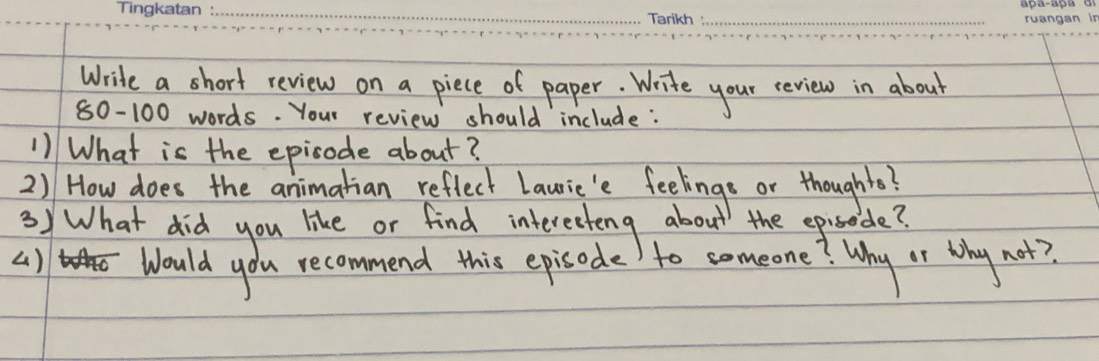 Tingkatan : Tarikh : apa-apa di
ruangan in
Write a short review on a piece of paper. Write your review in about
80-100 words. Your review should include:
1) What is the episode about?
2) How does the animatian reflect Laurie'e feelings or thoughts?
3) What did you like or find interecteng about the episode?
4) Would you recommend this episode to someone? Why or Why not?